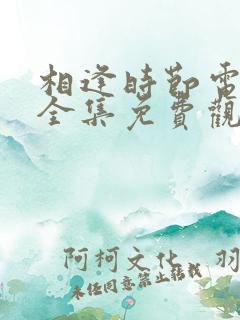 相逢時節電
全集免費觀
阿柯文化 羽
未經同意禁止轉載